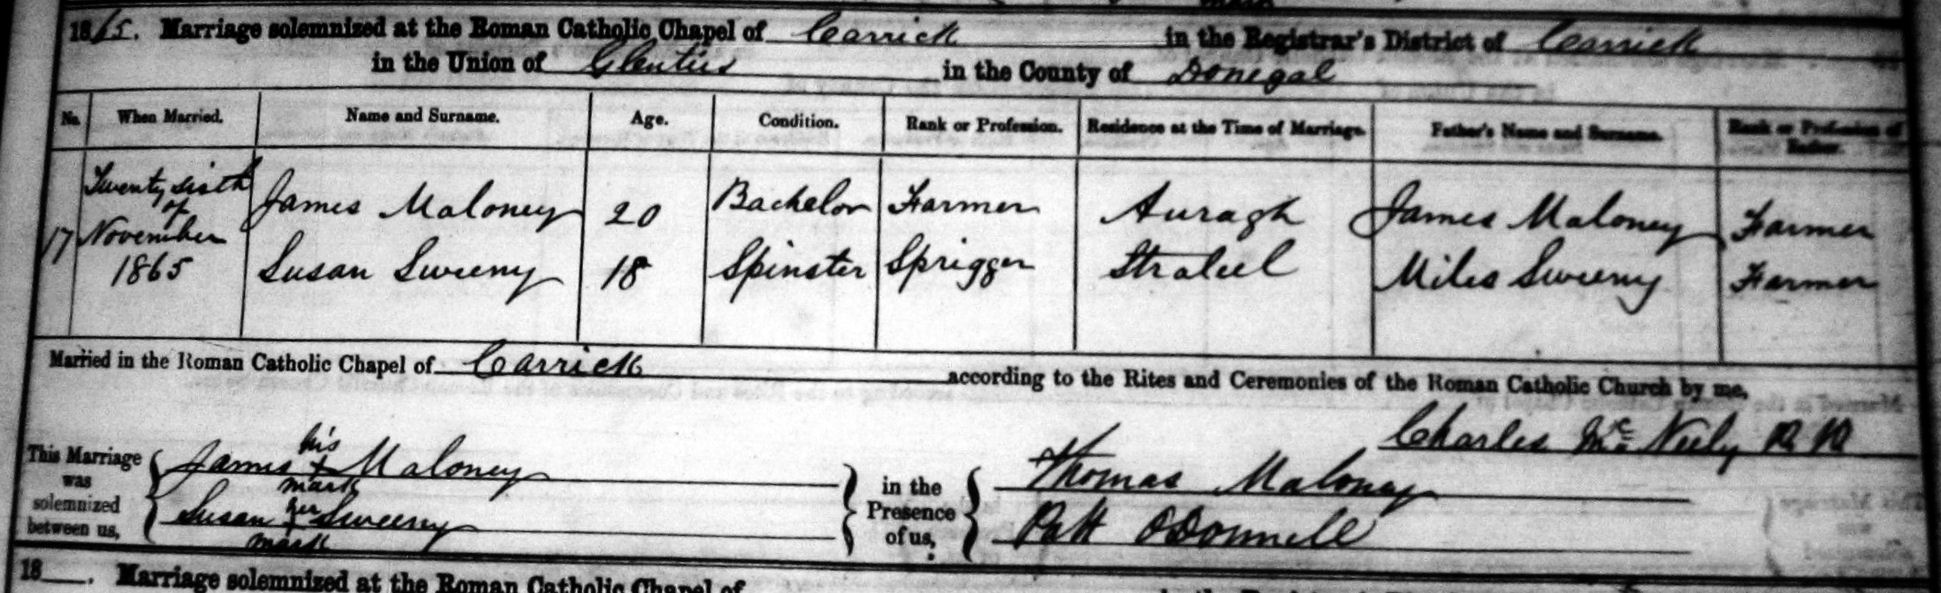 1865. Marriage solemnized at the Roman Catholic Chapel of Carrick in the Registrar's District of Carrick
in the Union of Glenties in the County of Donegal
No. When Married. Name and Surname. Age. Condition. Rank or Profession. Residence at the Time of Marriage. Father's Name and Surname. Rank or Profession of Father.
17 Twenty sixth of November 1865
James Maloney 20 Bachelor Farmer Auragh James Maloney Farmer
Susan Sweeny 18 Spinster Sprigger Straleel Miles Sweeny Farmer
Married in the Roman Catholic Chapel of Carrick according to the Rites and Ceremonies of the Roman Catholic Church by me,
Charles McNeely
This Marriage was solemnized between us,
James his x mark Maloney
Susan her x mark Sweeny
in the Presence of us,
Thomas Maloney
Patt ODonnell
18 . Marriage solemnized at the Roman Catholic Chapel of